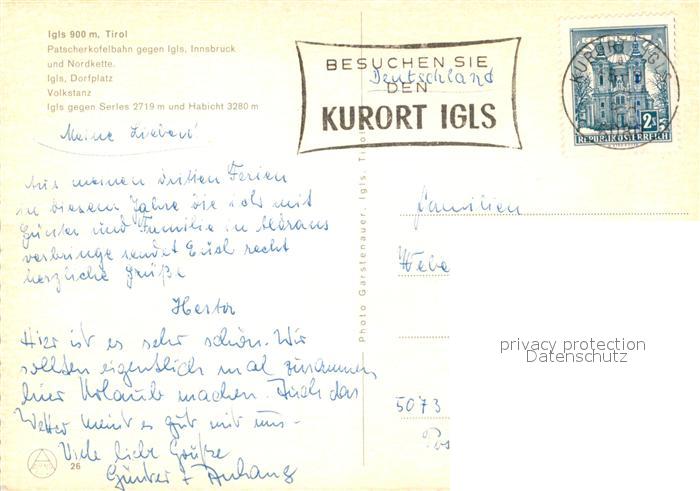 Igls 900 m, Tirol
Patscherkofelbahn gegen Igls, Innsbruck
und Nordkette.
Igls, Dorfplatz
Volkstanz
Igls gegen Serles 2719 m und Habicht 3280 m
BESUCHEN SIE
Deutschland
DEN
KURORT IGLS
KURORT IGLS
2 S
REPUBLIK ÖSTERREICH
Meine Lieben!
Aus meinen dritten Ferien
in diesem Jahre die ich mit
Günter und Familie in Aldrans
verbringe sendet Euch recht
herzliche Grüße
Hier ist es sehr schön. Wir
sollten eigentlich mal zusammen
hier Urlaub machen. Auch das
Wetter meint es gut mit uns -
Viele liebe Grüße
Günter + Anhang
26
Photo Garstenauer, Igls, Tirol
Familien
Webe
privacy protection
Datenschutz
5073